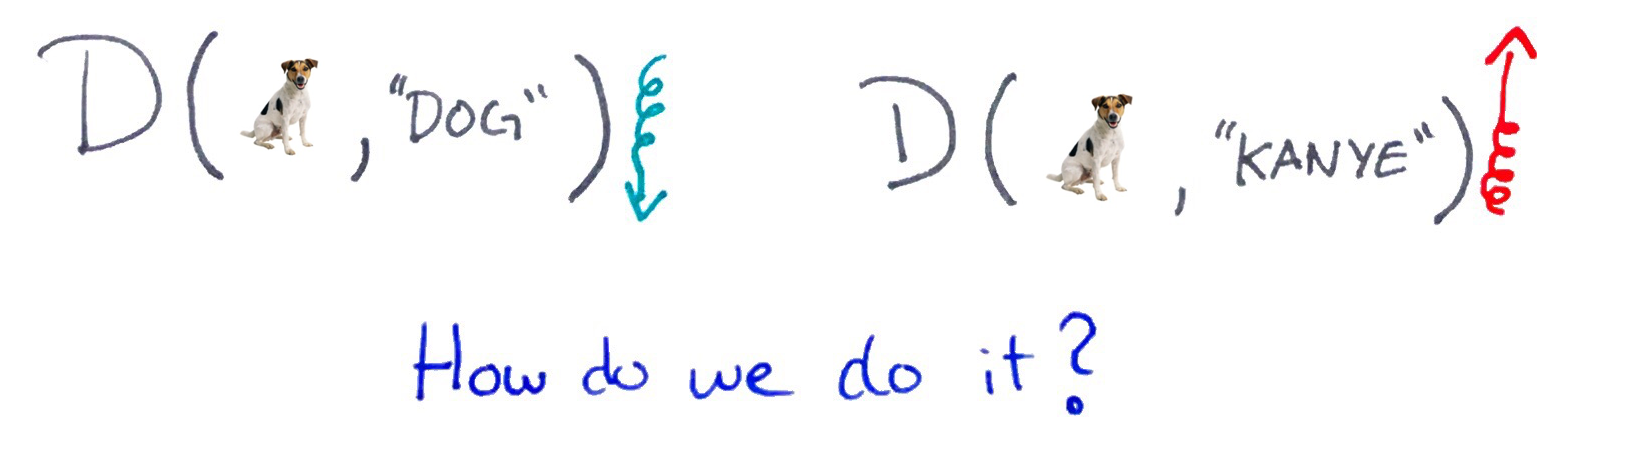 D( , "DOG") D( , "KANYE")
How do we do it?